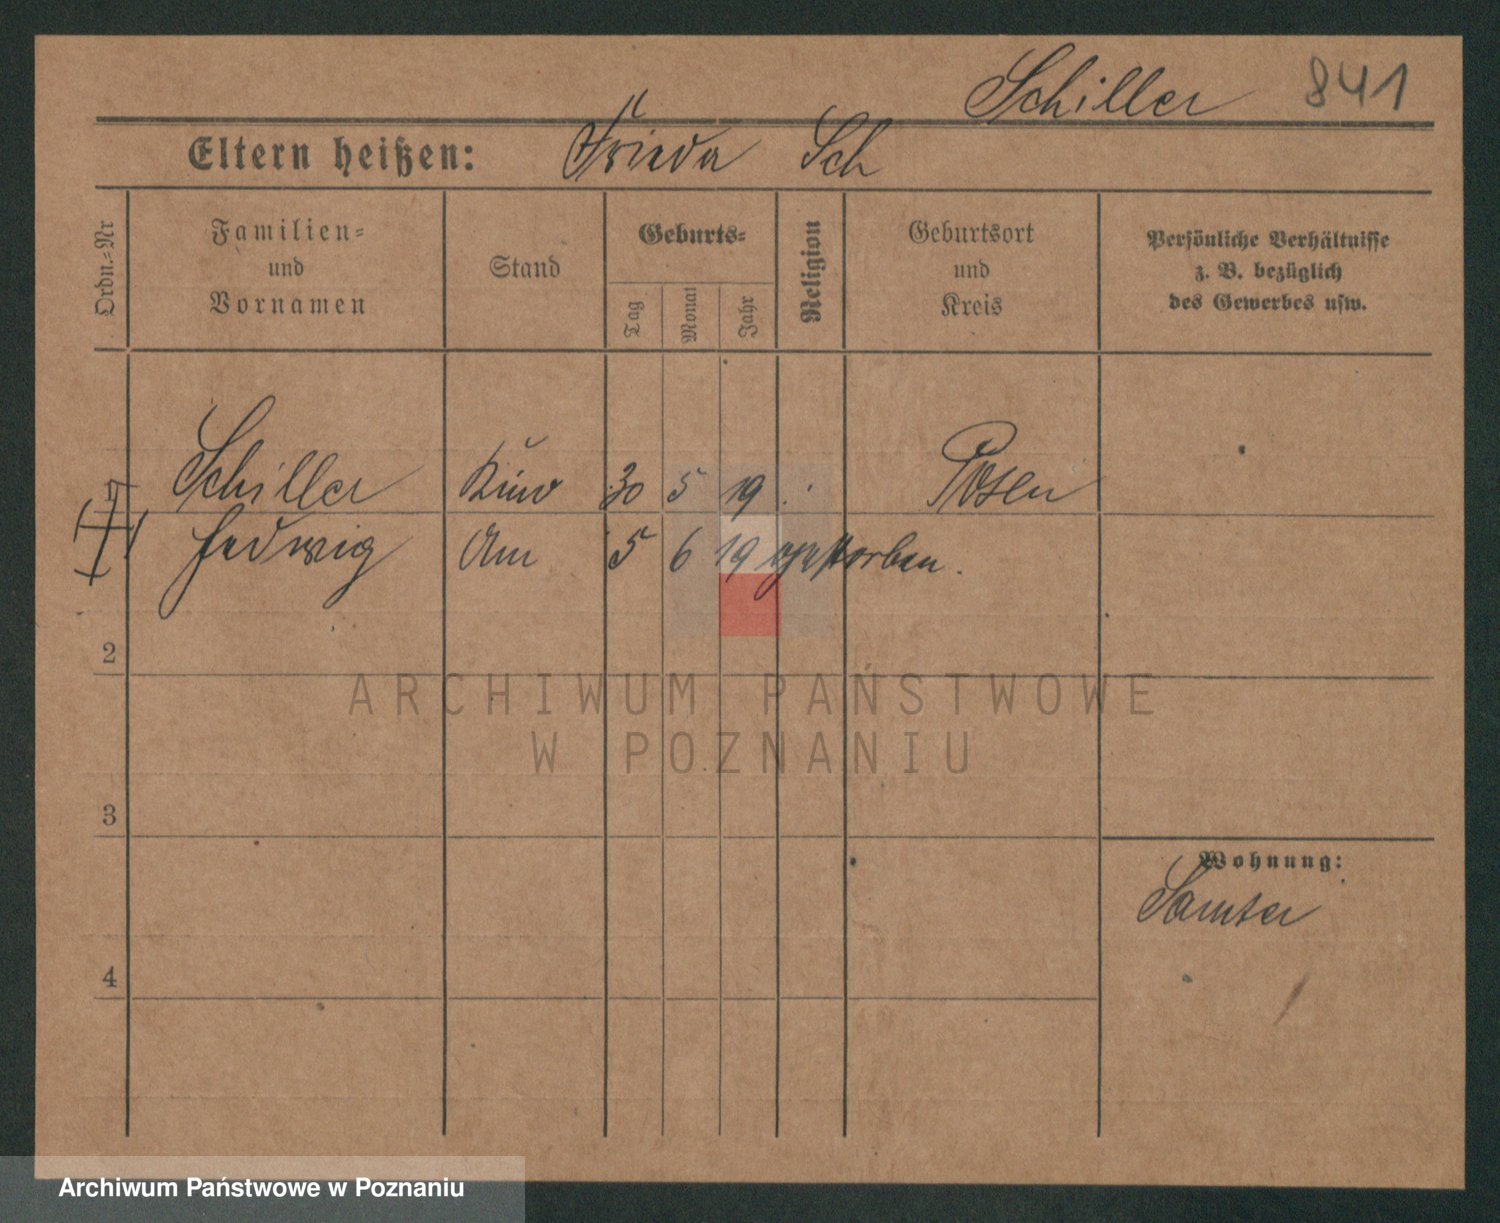 Schiller 841
Eltern heißen: Frieda Sch
Ordn.=Nr
Familien=
und
Vornamen
Stand
Geburts=
Tag
Monat
Jahr
Religion
Geburtsort
und
Kreis
Persönliche Verhältnisse
z. B. bezüglich
des Gewerbes usw.
1 Schiller Kind 30 5 19 Posen
Hedwig Am 5 6 19 gestorben.
2
3
4
Wohnung:
Samter
ARCHIWUM PAŃSTWOWE
W POZNANIU
Archiwum Państwowe w Poznaniu